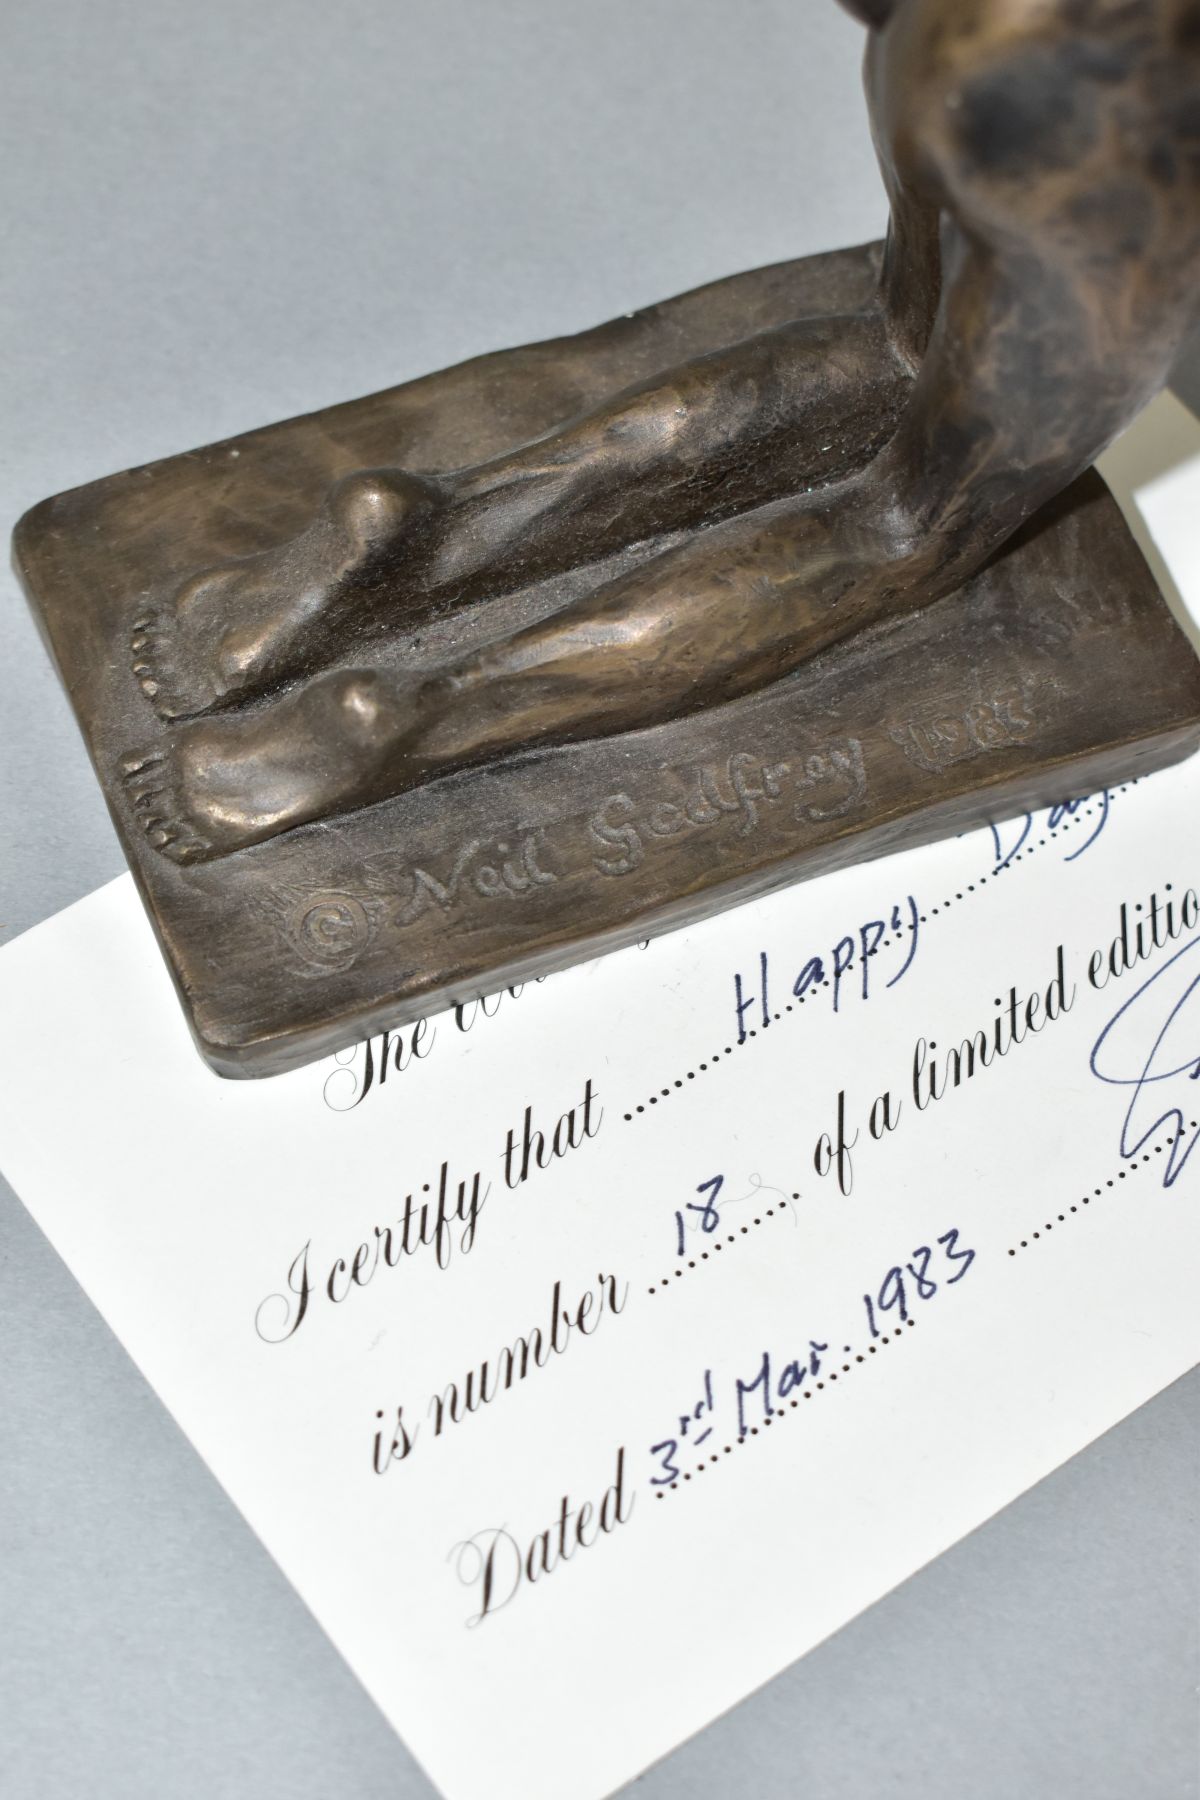 © Neil Godfrey 1983
The
I certify that Happy Day
is number 18 of a limited editio
Dated 3rd Mar. 1983